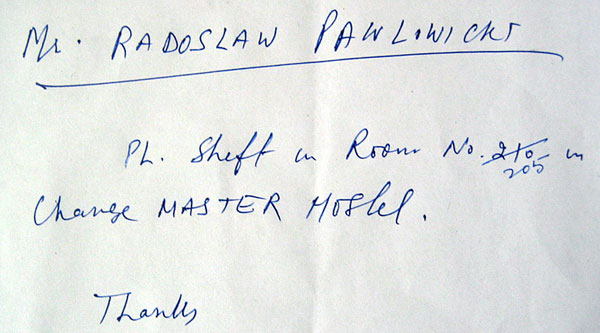 Mr. RADOSLAW PAWLOWICKI
Ph. Sheft in Room No. 210 in
205
Change MASTER Hostel.
Thanks